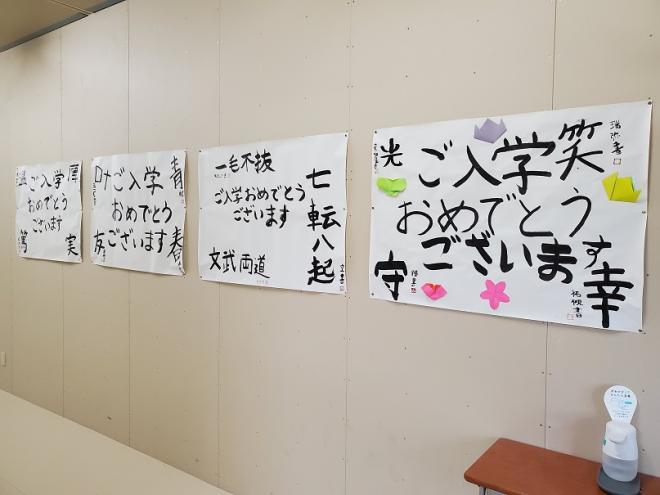 温
厚
ご入学
おめでとう
ございます
篤
実
叶
青
ご入学
おめでとう
ございます
友
春
一毛不抜
ご入学おめでとう
ございます
七転八起
文武両道
光
笑
ご入学
おめでとう
ございます
守
幸